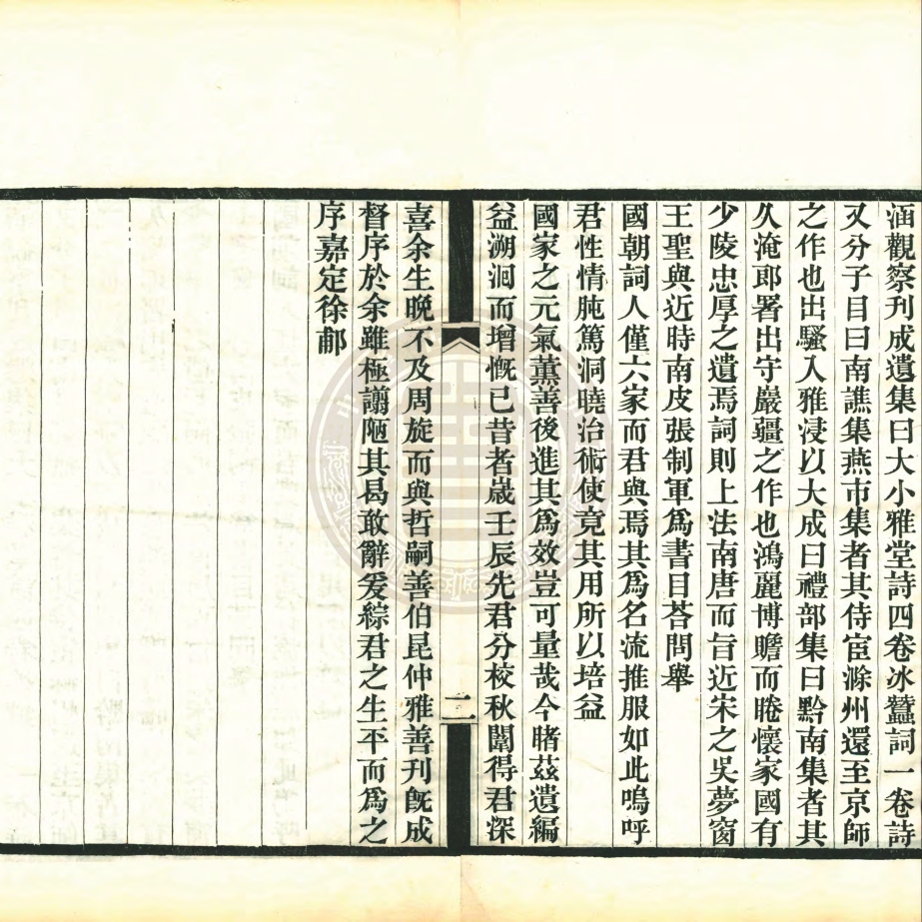 涵觀察刊成遺集曰大小雅堂詩四卷冰蠶詞一卷詩
又分子目曰南譙集燕市集者其侍宦滁州還至京師
之作也出騷入雅浸以大成曰禮部集曰黔南集者其
久淹郎署出守巖疆之作也鴻麗博贍而睠懷家國有
少陵忠厚之遺焉詞則上法南唐而旨近宋之吳夢窗
王聖與近時南皮張制軍爲書目荅問舉
國朝詞人僅六家而君與焉其爲名流推服如此嗚呼
君性情肫篤洞曉治術使竟其用所以培益
國家之元氣薰善後進其爲效豈可量哉今睹茲遺編
益溯洄而增慨已昔者歲壬辰先君分校秋闈得君深
二
喜余生晚不及周旋而與哲嗣善伯昆仲雅善刊旣成
督序於余雖極譾陋其曷敢辭爰綜君之生平而爲之
序嘉定徐郙